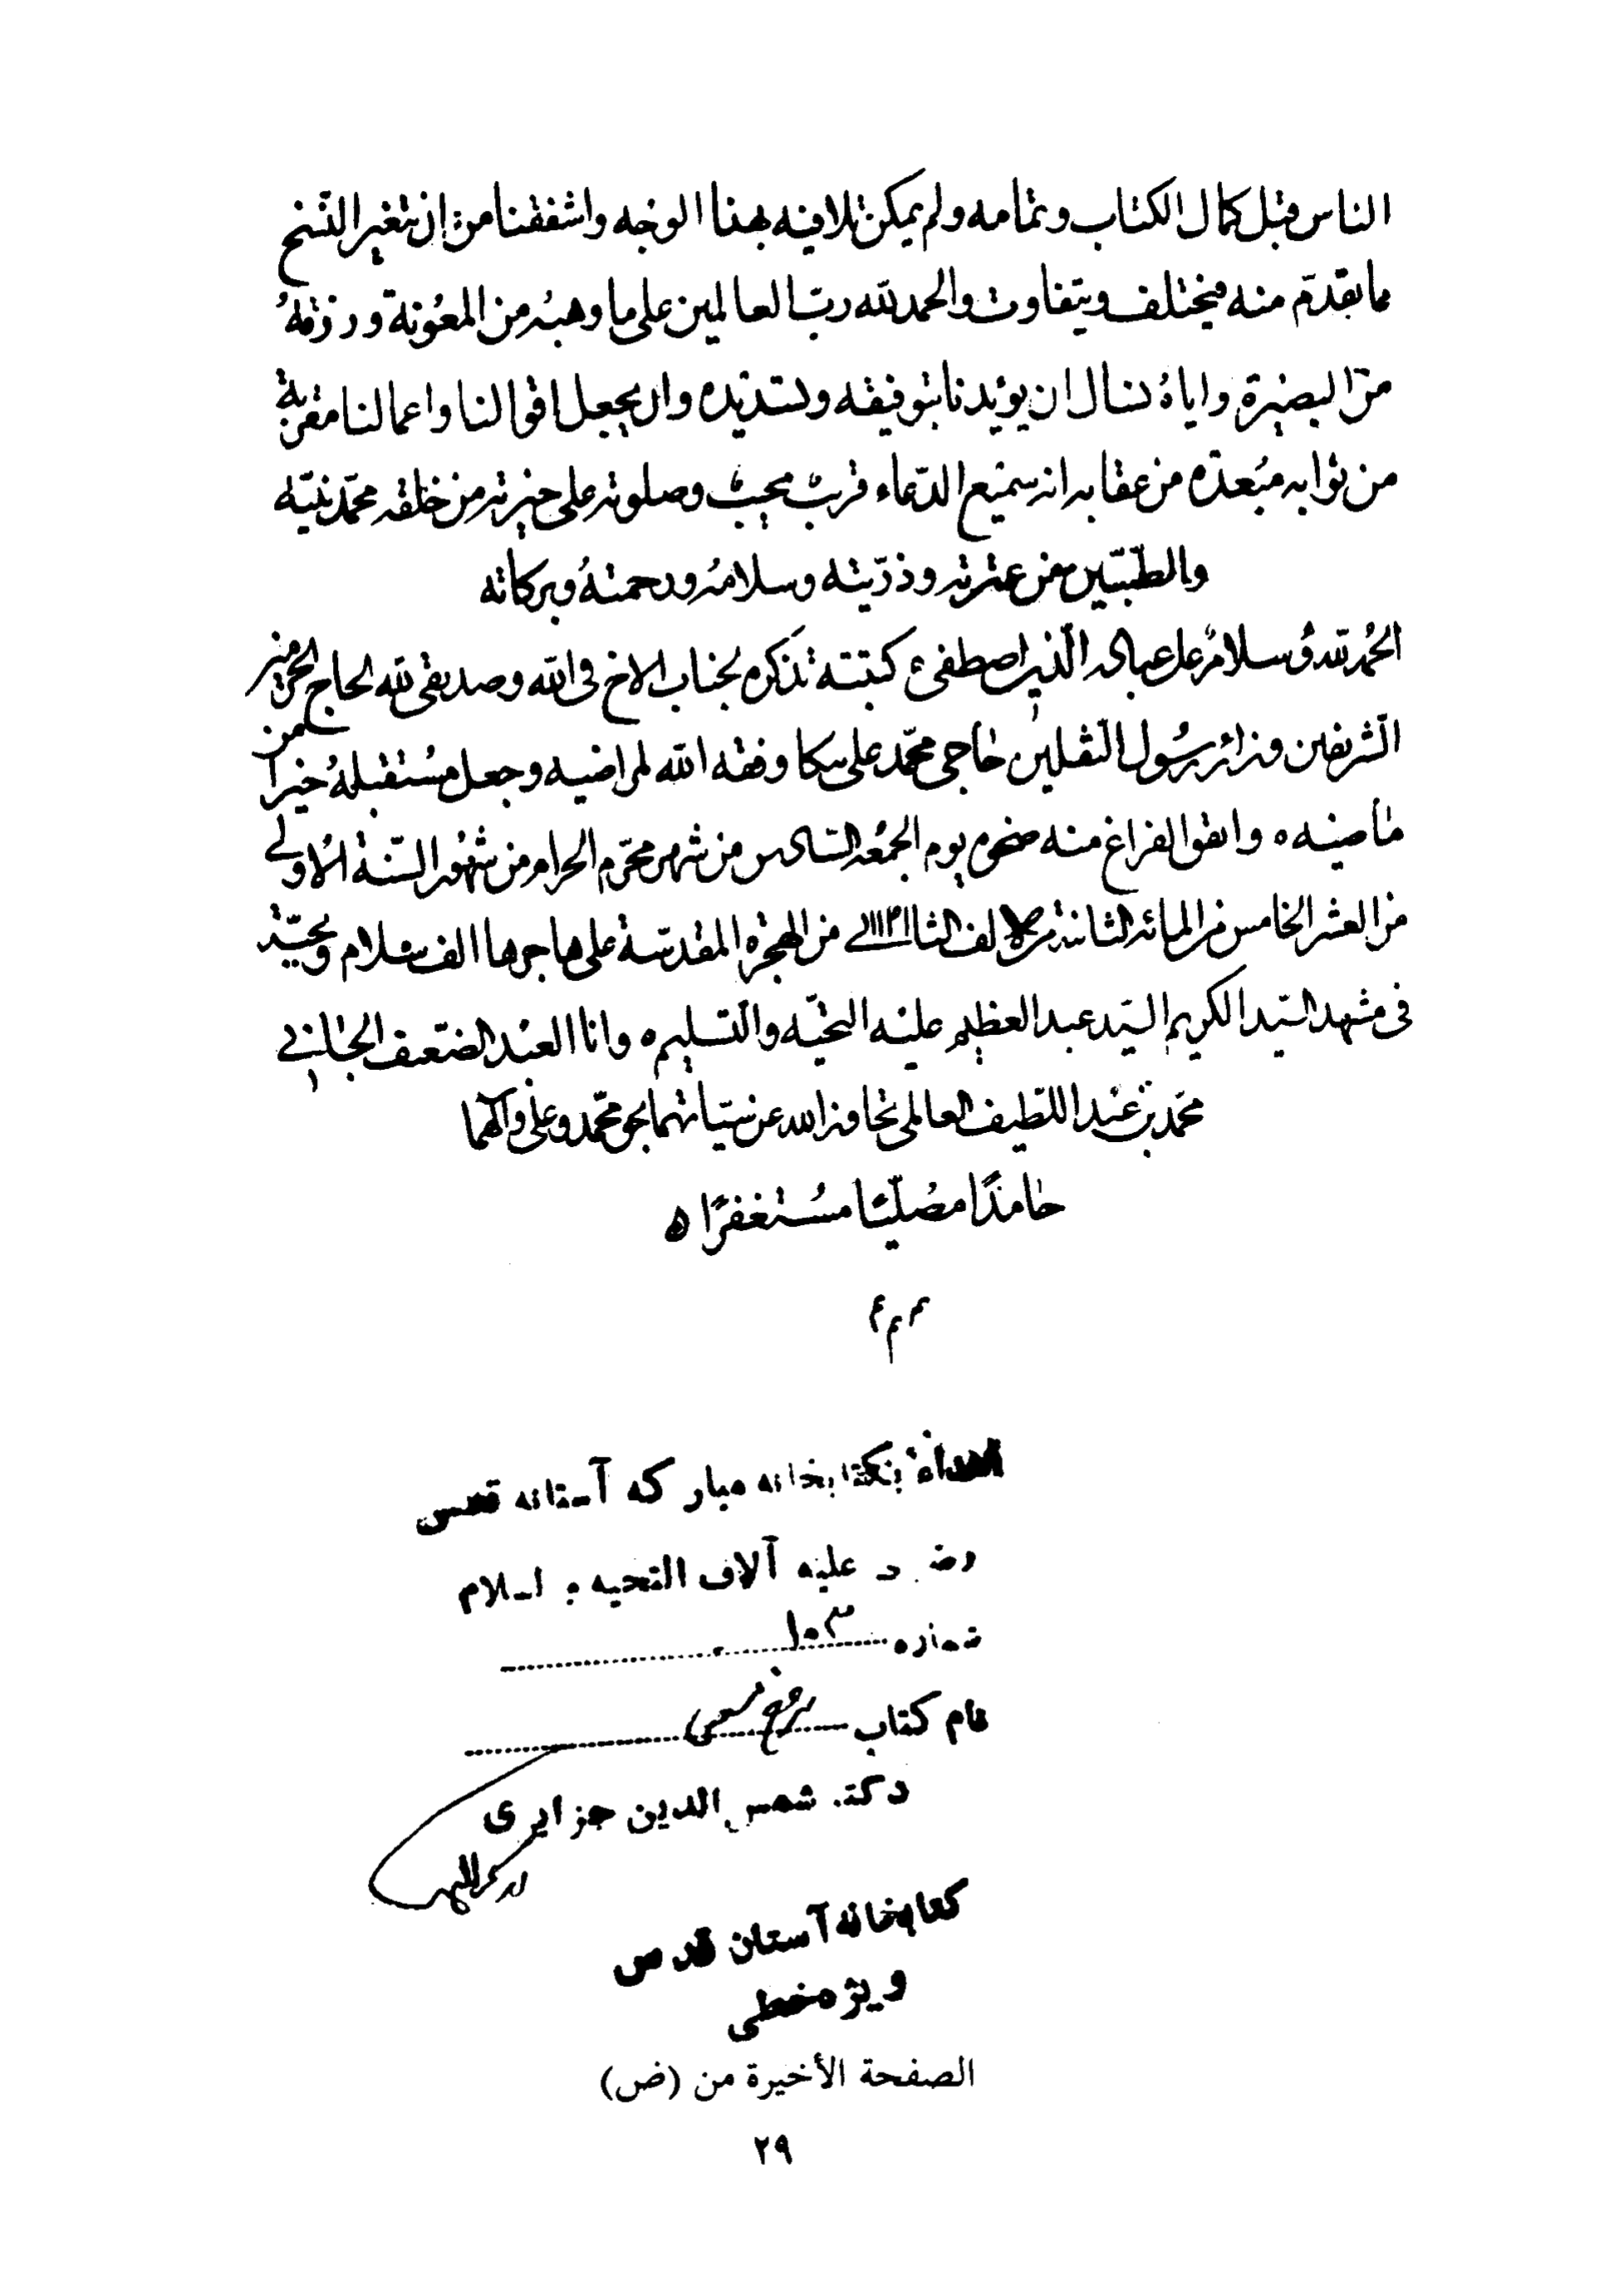 الناس قبل كمال الكتاب وتمامه ولم يمكن تلافيه بهذا الوجه واشفقنا من ان يتغير النسخ
مما تقدم منه فيختلف ويتفاوت والحمد لله رب العالمين على ما وهبه من المعونة ورزقهُ
من البصيرة واياهُ نسال ان يؤيدنا بتوفيقه وتسديده وان يجعل اقوالنا واعمالنا مقربة
من ثوابه مبعدة من عقابه انه سميع الدعاء قريب مجيب وصلوته على خيرته من خلقه محمد نبيّه
والطيبين من عترته وذريته وسلامه ورحمته وبركاته
الحمد لله وسلام على عباده الذين اصطفى كتبته تذكره لجناب الاخ فى الله وصديقى لله الحاج الحرمين
الشريفين وزائر رسول الثقلين حاجى محمد على وفقه الله لمراضيه وجعل مستقبلهُ خيرا من
ماضيه ه واتفق الفراغ منه ضحوة يوم الجمعه السادس من شهر محرم الحرام من شهور السنة الاولى
من العشر الخامس من المائه الثانية من الالف الثانى من الهجرة المقدسة على هاجرها الف سلام وتحيّة
فى مشهد السيد الكريم السيد عبد العظيم عليه التحيّه والتسليم ه وانا العبد الضعيف الجانى
محمد بن عبد اللطيف العاملى تجاوز الله عن سيّاتهما بحق محمد وعلى وآلهما
حامدًا مصليًا مستغفرًا ه
م م م
اهدائى بكتابخانه مباركه آستانه قدس
رضوى عليه آلاف التحيه و السلام
شماره ۱۰۳
نام كتاب
دكتر شمس الدين جزايرى
كتابخانه آستان قدس
ويژه خطى
الصفحة الأخيرة من (ض)
٢٩